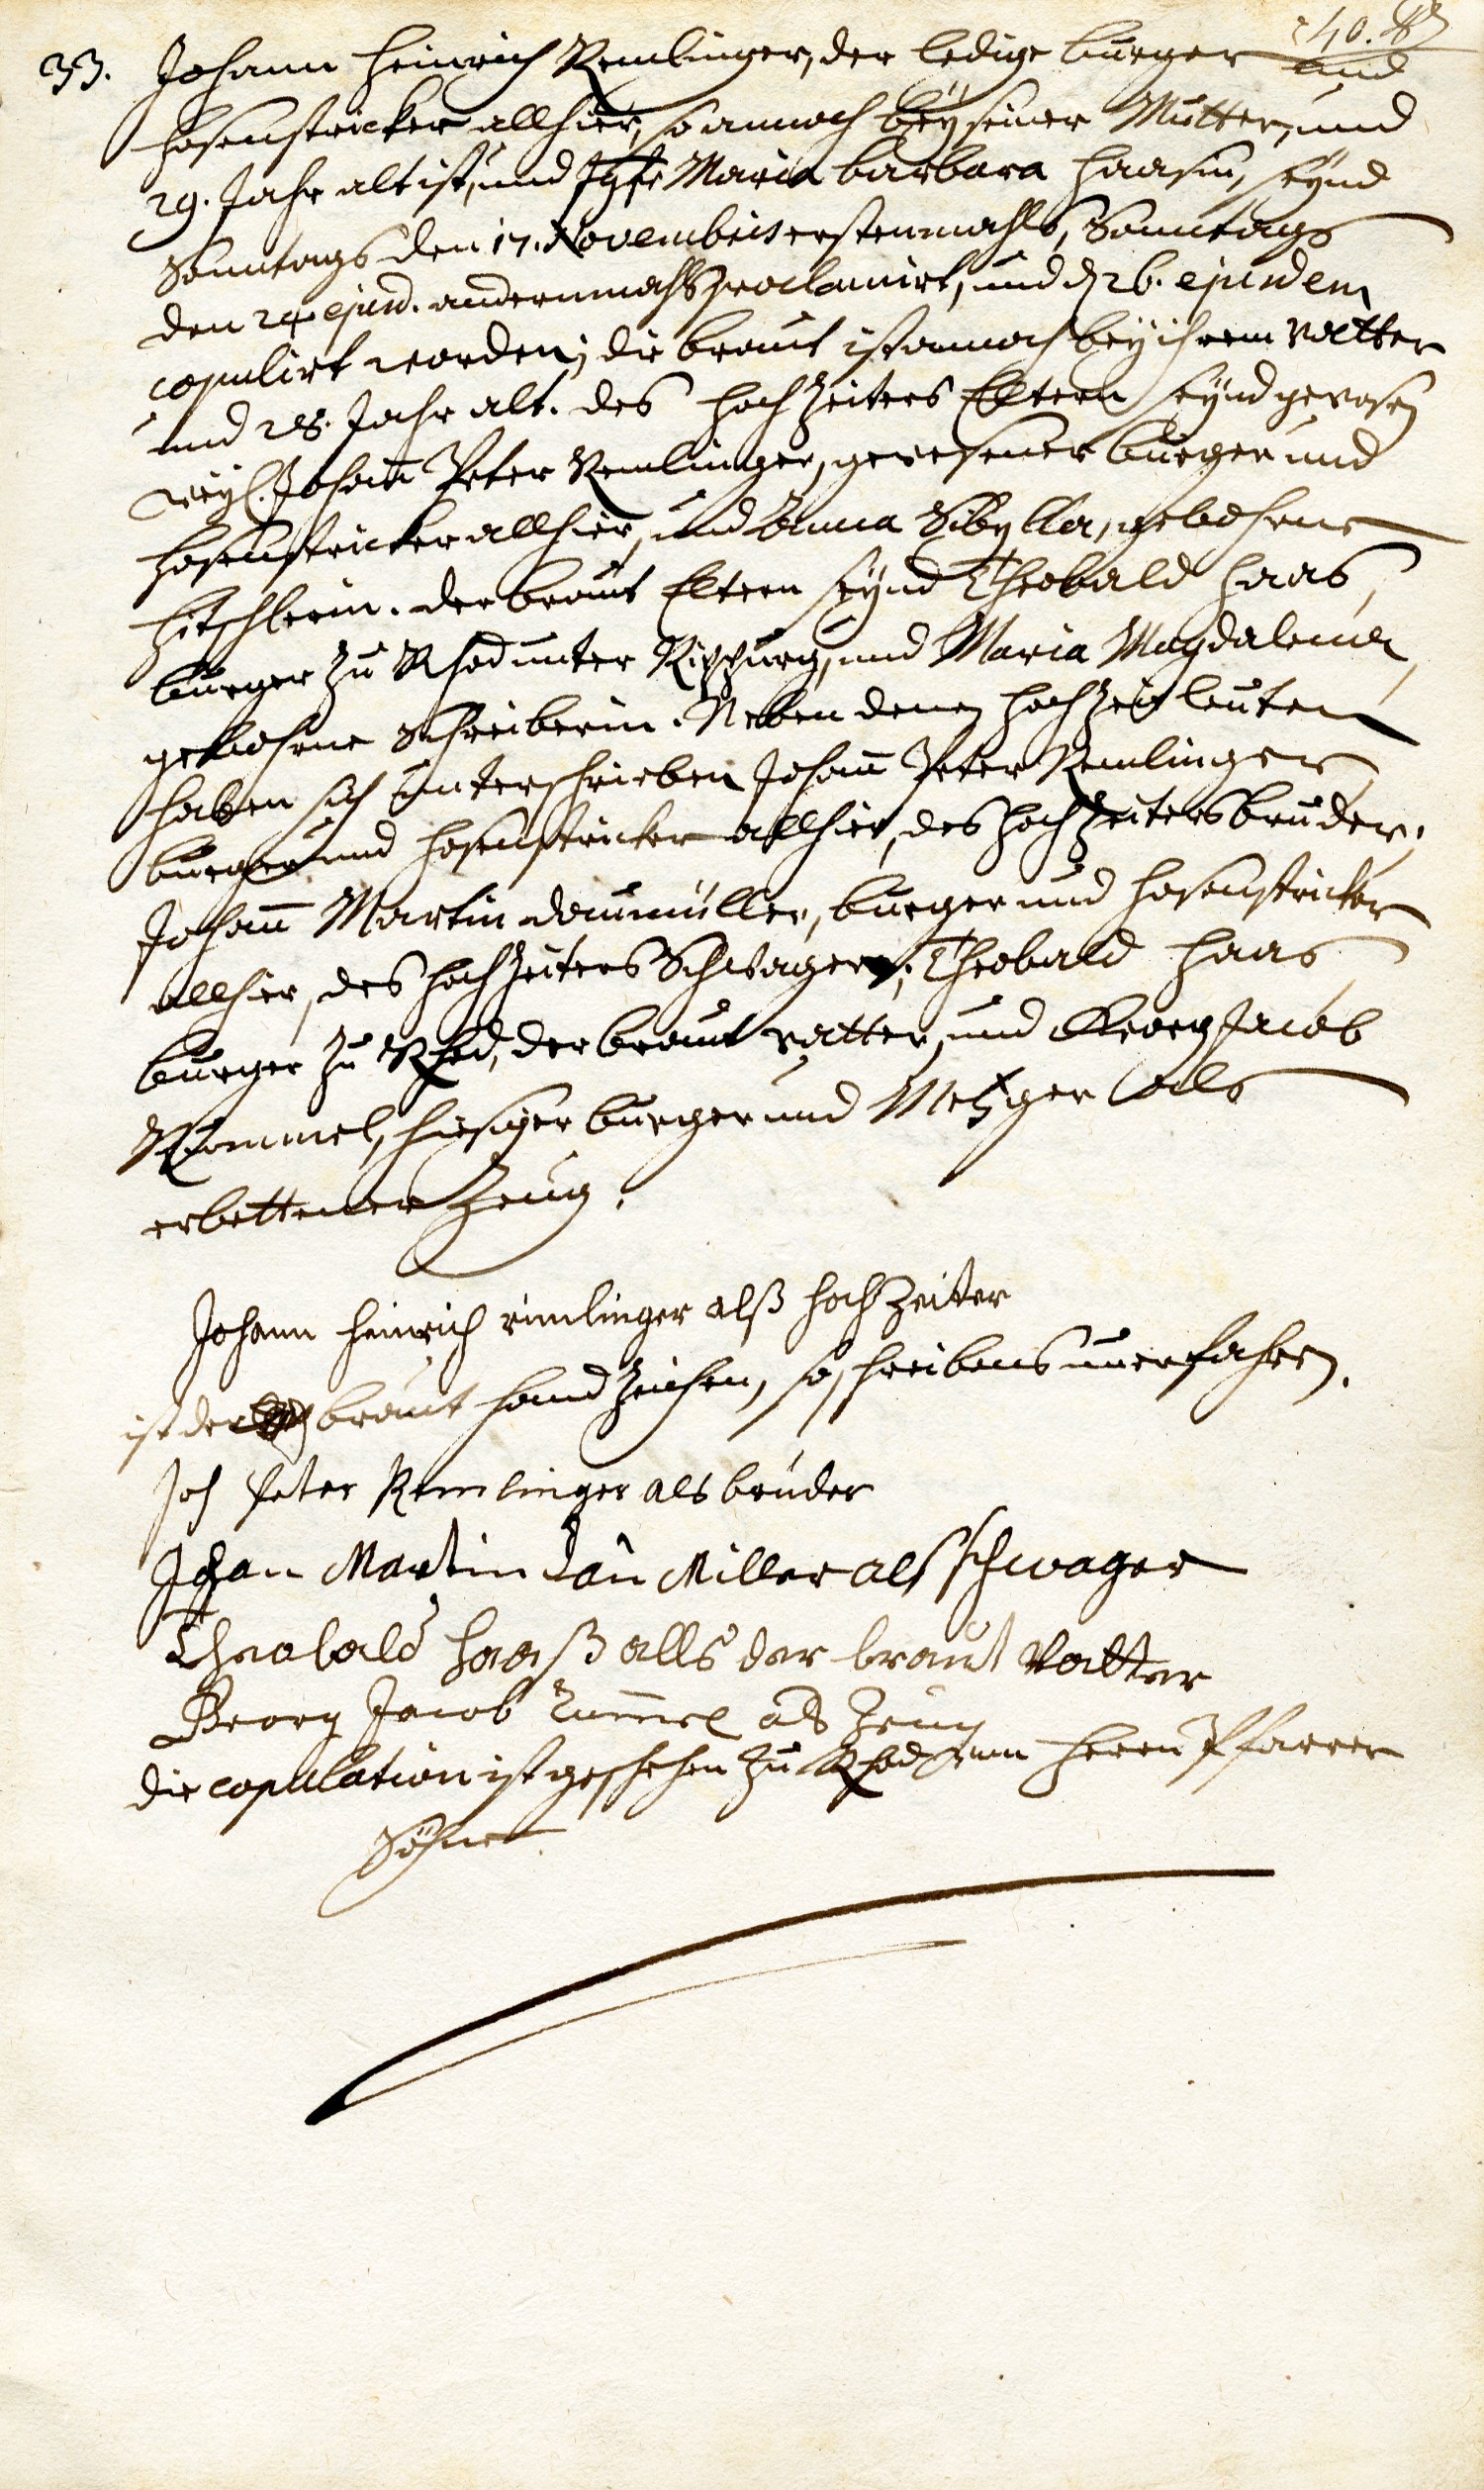 40.
33. Johann Heinrich Remlinger, der ledige burger und
hosenstricker allhier, so annoch bey seiner Mutter, und
29. Jahr alt ist, und Jgfr Maria barbara Haasin, seynd
Sonntags den 17. Novembris erstenmahls, Sonntags
den 24 ejusd. andernmahls proclamirt, und d 26. ejusdem
copulirt worden; die braut ist annoch bey ihrem Vatter
und 28. Jahr alt. des hochzeiters Eltern seynd gewesen
weyl. Johañ Peter Remlinger, gewesener burger und
hosenstricker allhier, und Anna Sibylla, gebohrne
. der braut Eltern seynd Theobald Haas,
burger zu Rhod unter Rippurg, und Maria Magdalena,
gebohrne Schreiberin. Neben denen hochzeitleuten
haben sich unterschrieben Johañ Peter Remlinger
burger und hosenstricker allhier, des hochzeiters bruder,
Johañ Martin Daumüller, burger und hosenstricker
allhier, des hochzeiters Schwager, Theobald Haas
burger zu Rhod, der braut Vatter, und Georg Jacob
Rommel, hiesiger burger und Metzger als
erbettener Zeug.
Johann Heinrich rimlinger alß hochzeiter
ist der braut handzeichen, so schreibens unerfahren.
Joh Peter Remlinger als bruder
Johan Martin dau Miller als schwager
Theobald Haaß alls der braut Vatter
Georg Jacob als Zeug
die copulation ist geschehen zu Rhod von Herrn Pfarrer